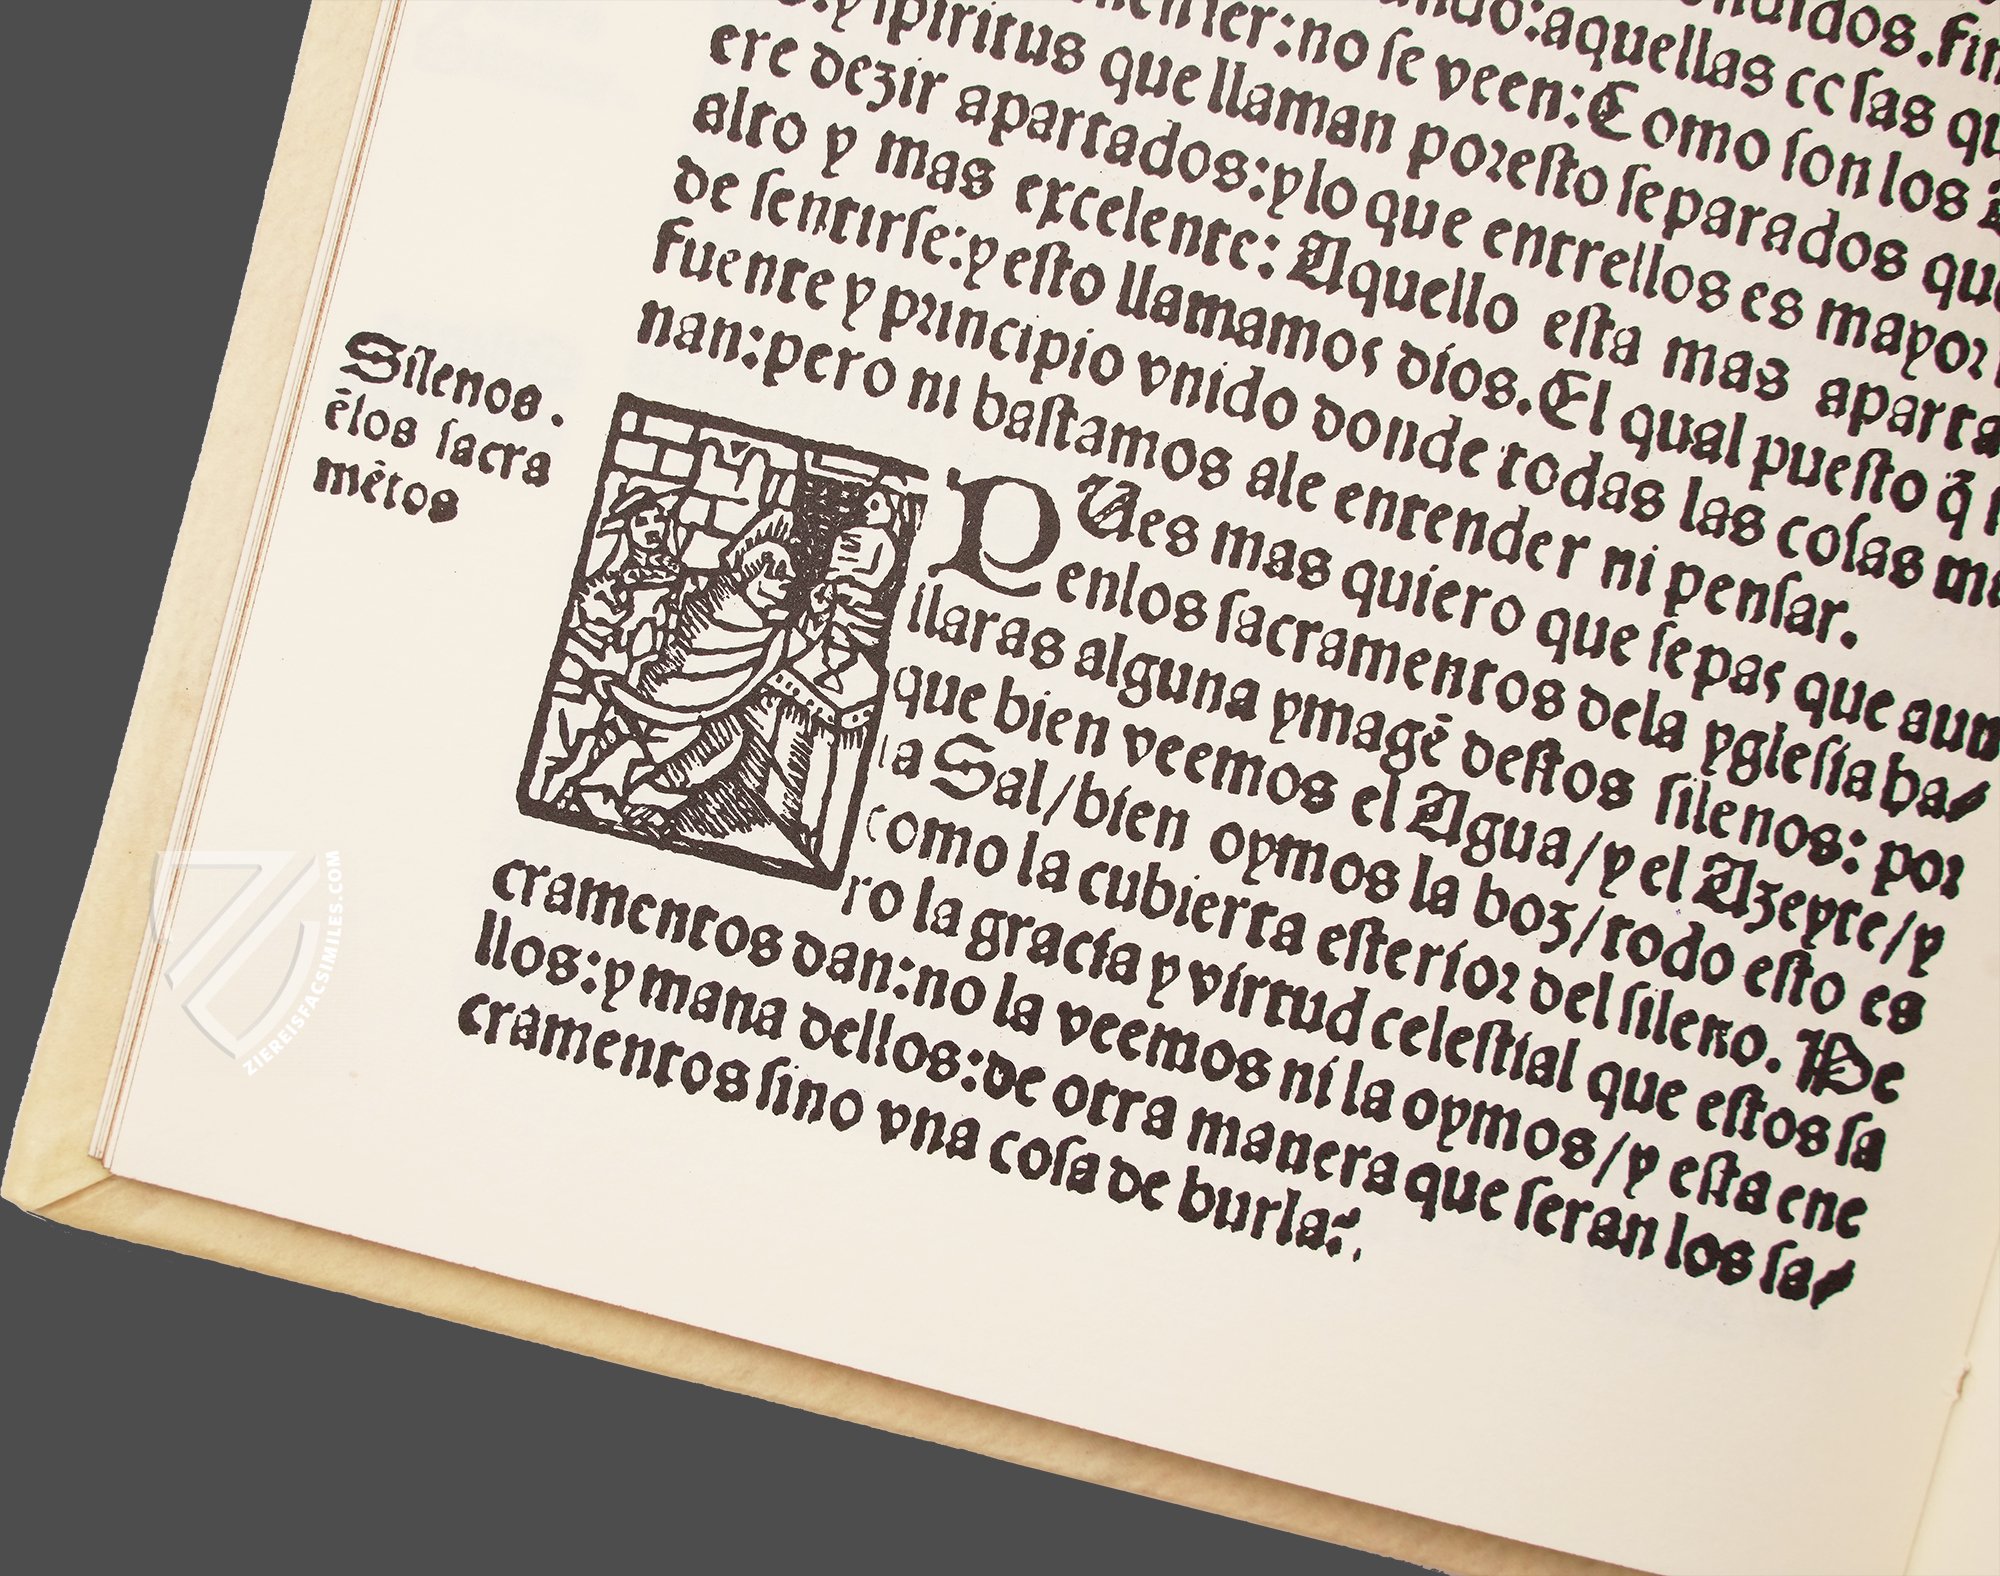 ere dezir apartados:ylo que entrellos es mayor
alto y mas excelente: Aquello esta mas aparta
de sentirse:y esto llamamos dios. El qual puesto q̄
fuente y principio vnido donde todas las cosas
nan:pero ni bastamos ale entender ni pensar.
Silenos.
ēlos sacra
mētos
PUes mas quiero que sepas que aun
enlos sacramentos dela yglesia ha/
llaras alguna ymagē destos silenos: por
que bien veemos el Agua/y el Azeyte/y
la Sal/bien oymos la boz/todo esto es
como la cubierta esterior del sileno. Pe
ro la gracia y virtud celestial que estos sa
cramentos dan:no la veemos ni la oymos/y esta ene
llos:y mana dellos:de otra manera que seran los sa/
cramentos sino vna cosa de burla:
ZIEREISFACSIMILES.COM